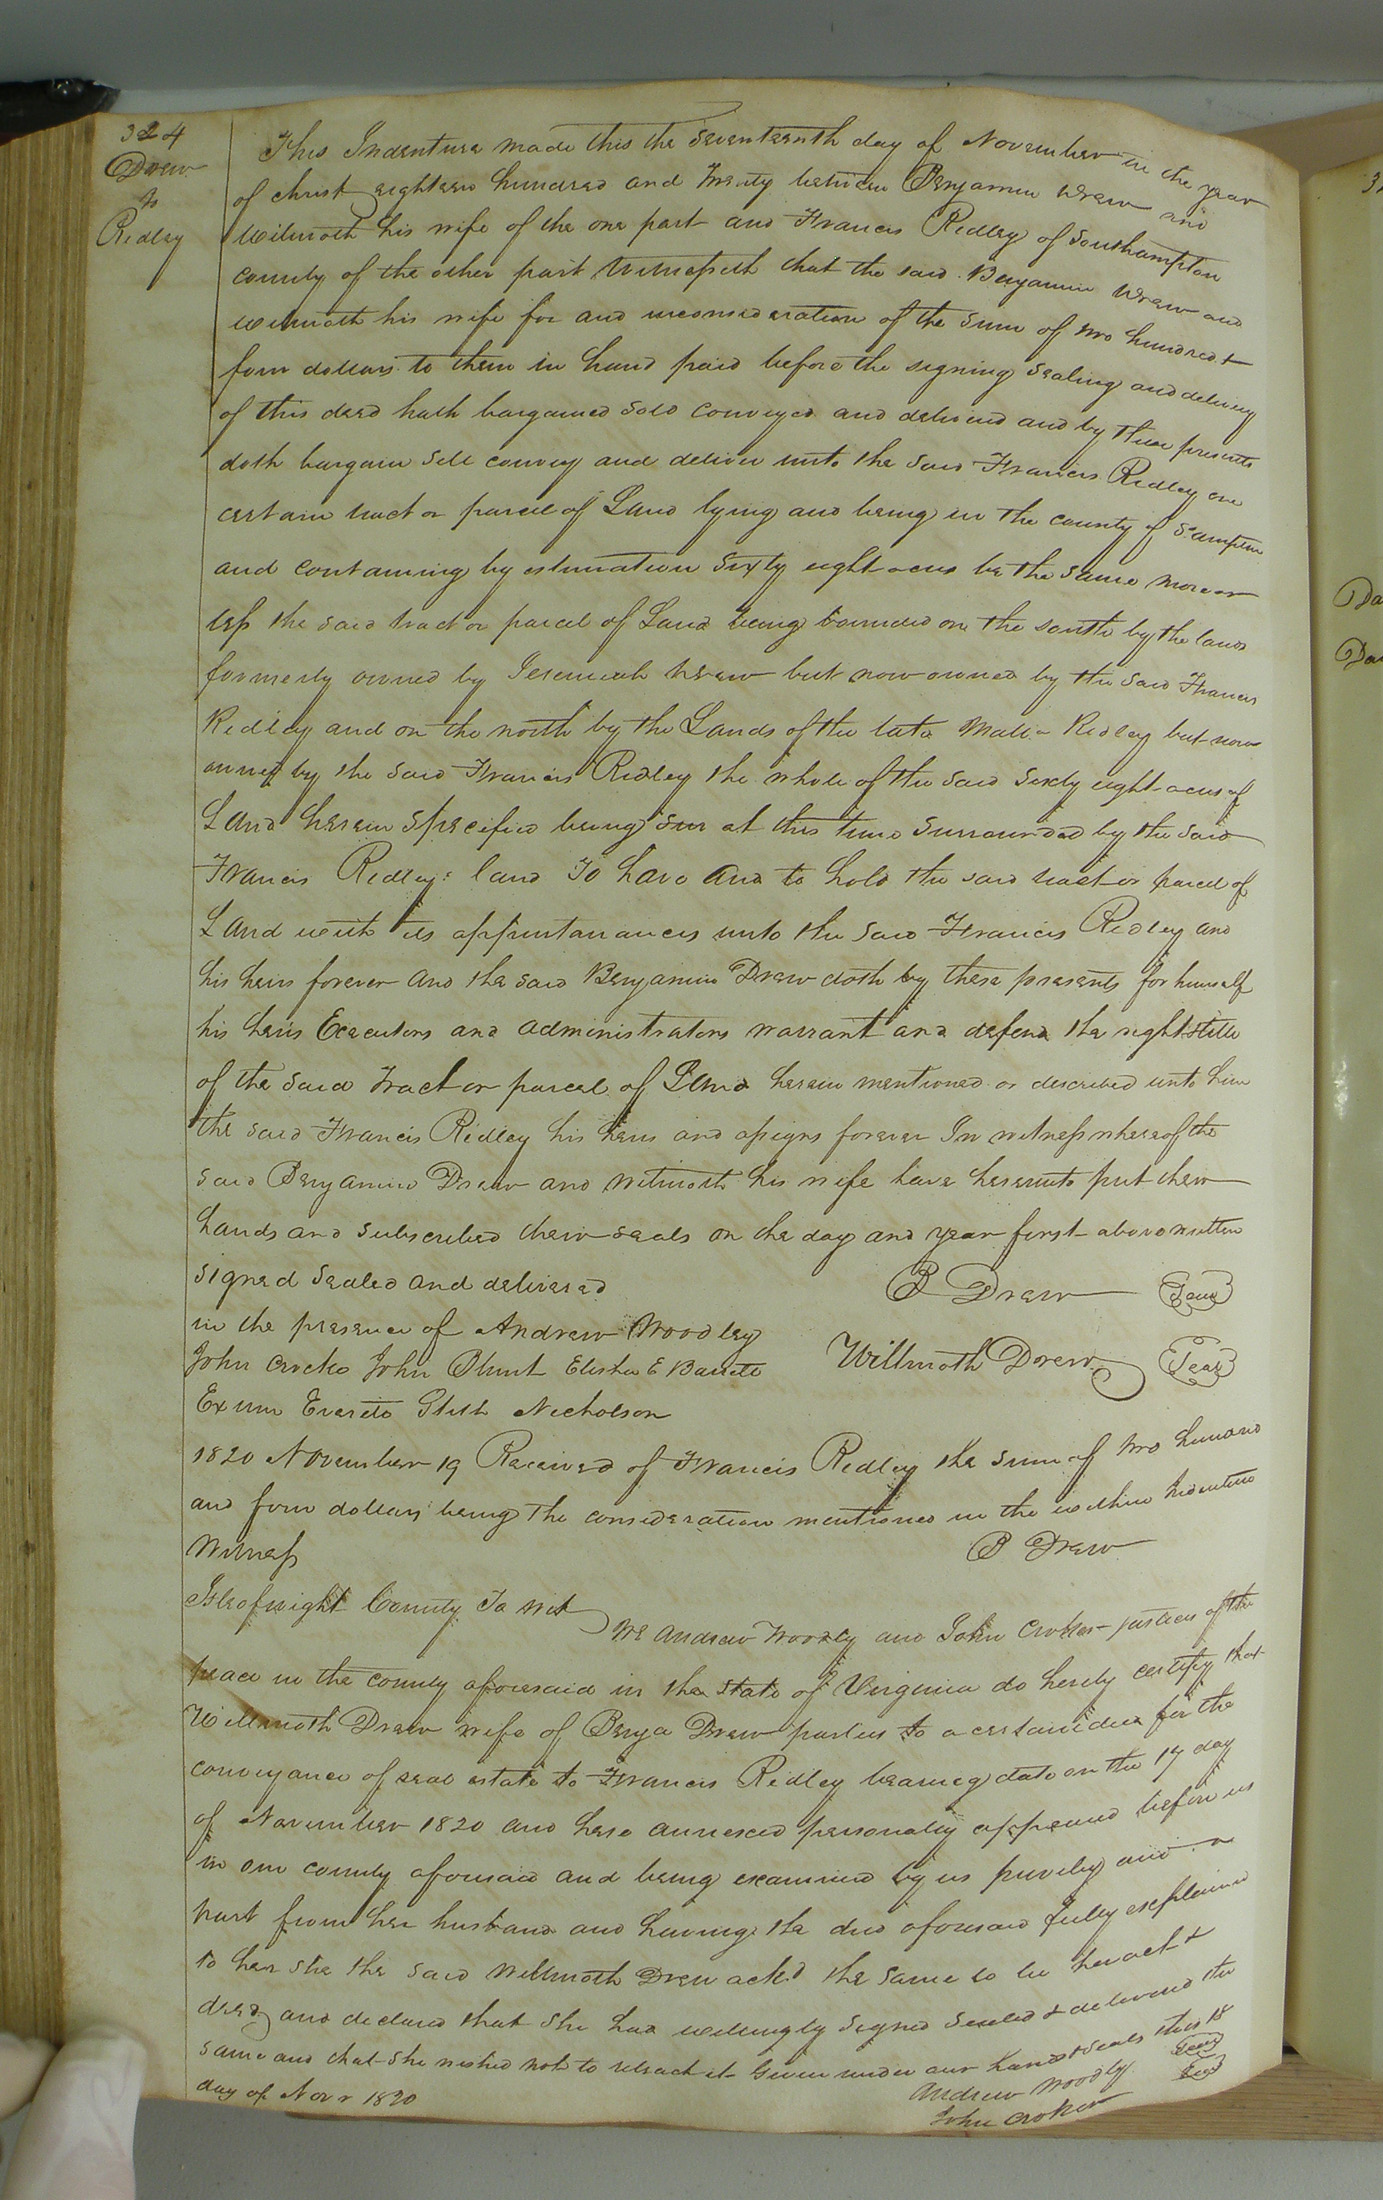 324
Drew
to
Ridley
This Indenture made this the Seventeenth day of November in the year
of christ eighteen hundred and Twenty between Benjamin Drew and
Wilmoth his wife of the one part and Francis Ridley of Southampton
county of the other part Witnesseth that the said Benjamin Drew and
Wilmoth his wife for and inconsideration of the Sum of two hundred &
four dollars to them in hand paid before the signing Sealing and delivery
of this deed hath bargained Sold conveyed and delivered and by these presents
doth bargain Sell convey and deliver unto the said Francis Ridley one
certain tract or parcel of Land lying and being in the county of S.ampton
and containing by estimation Sixty eight acres be the same more or
less the said tract or parcel of Land being bounded on the south by the lands
formerly owned by Jeremiah Drew but now owned by the said Francis
Ridley and on the north by the Lands of the late Ridley but now
owned by the said Francis Ridley the whole of the said Sixty eight acres of
Land herein Specified being at this time Surrounded by the said
Francis Ridley's land To have and to hold the said tract or parcel of
Land with its appurtanances unto the said Francis Ridley and
his heirs forever and the said Benjamin Drew doth by these presents for himself
his heirs Executors and administrators warrant and defend the right & title
of the said Tract or parcel of Land herein mentioned or described unto him
the said Francis Ridley his heirs and assigns forever In witness whereof the
said Benjamin Drew and Wilmoth his wife have hereunto put their
hands and subscribed their seals on the day and year first above written
Signed Sealed and delivered B Drew Seal
in the presence of Andrew Woodley
John Crocker John Blunt Elisha E Barrett Willmoth Drew Seal
Exum Everitt Nicholson
1820 November 19 Received of Francis Ridley the sum of two hundred
and four dollars being the consideration mentioned in the within Indenture
Witness B Drew
Isleofwight County To wit We Andrew Woodley and John Croker justices of the
peace in the county aforesaid in the State of Virginia do hereby certify that
Willmoth Drew wife of Benja Drew parties to a certain deed for the
conveyance of real estate to Francis Ridley bearing date on the 17 day
of November 1820 and here annexed personally appeared before us
in our county aforesaid and being examined by us privily and a
part from her husband and having the deed aforesaid fully explained
to her she the said Willmoth Drew ackd the same to be her act &
deed and declared that she had willingly Signed Sealed & delivered the
same and that she wished not to retract it Given under our hands & seals this 18
day of Novr 1820 Andrew Woodley Seal
John Croker Seal